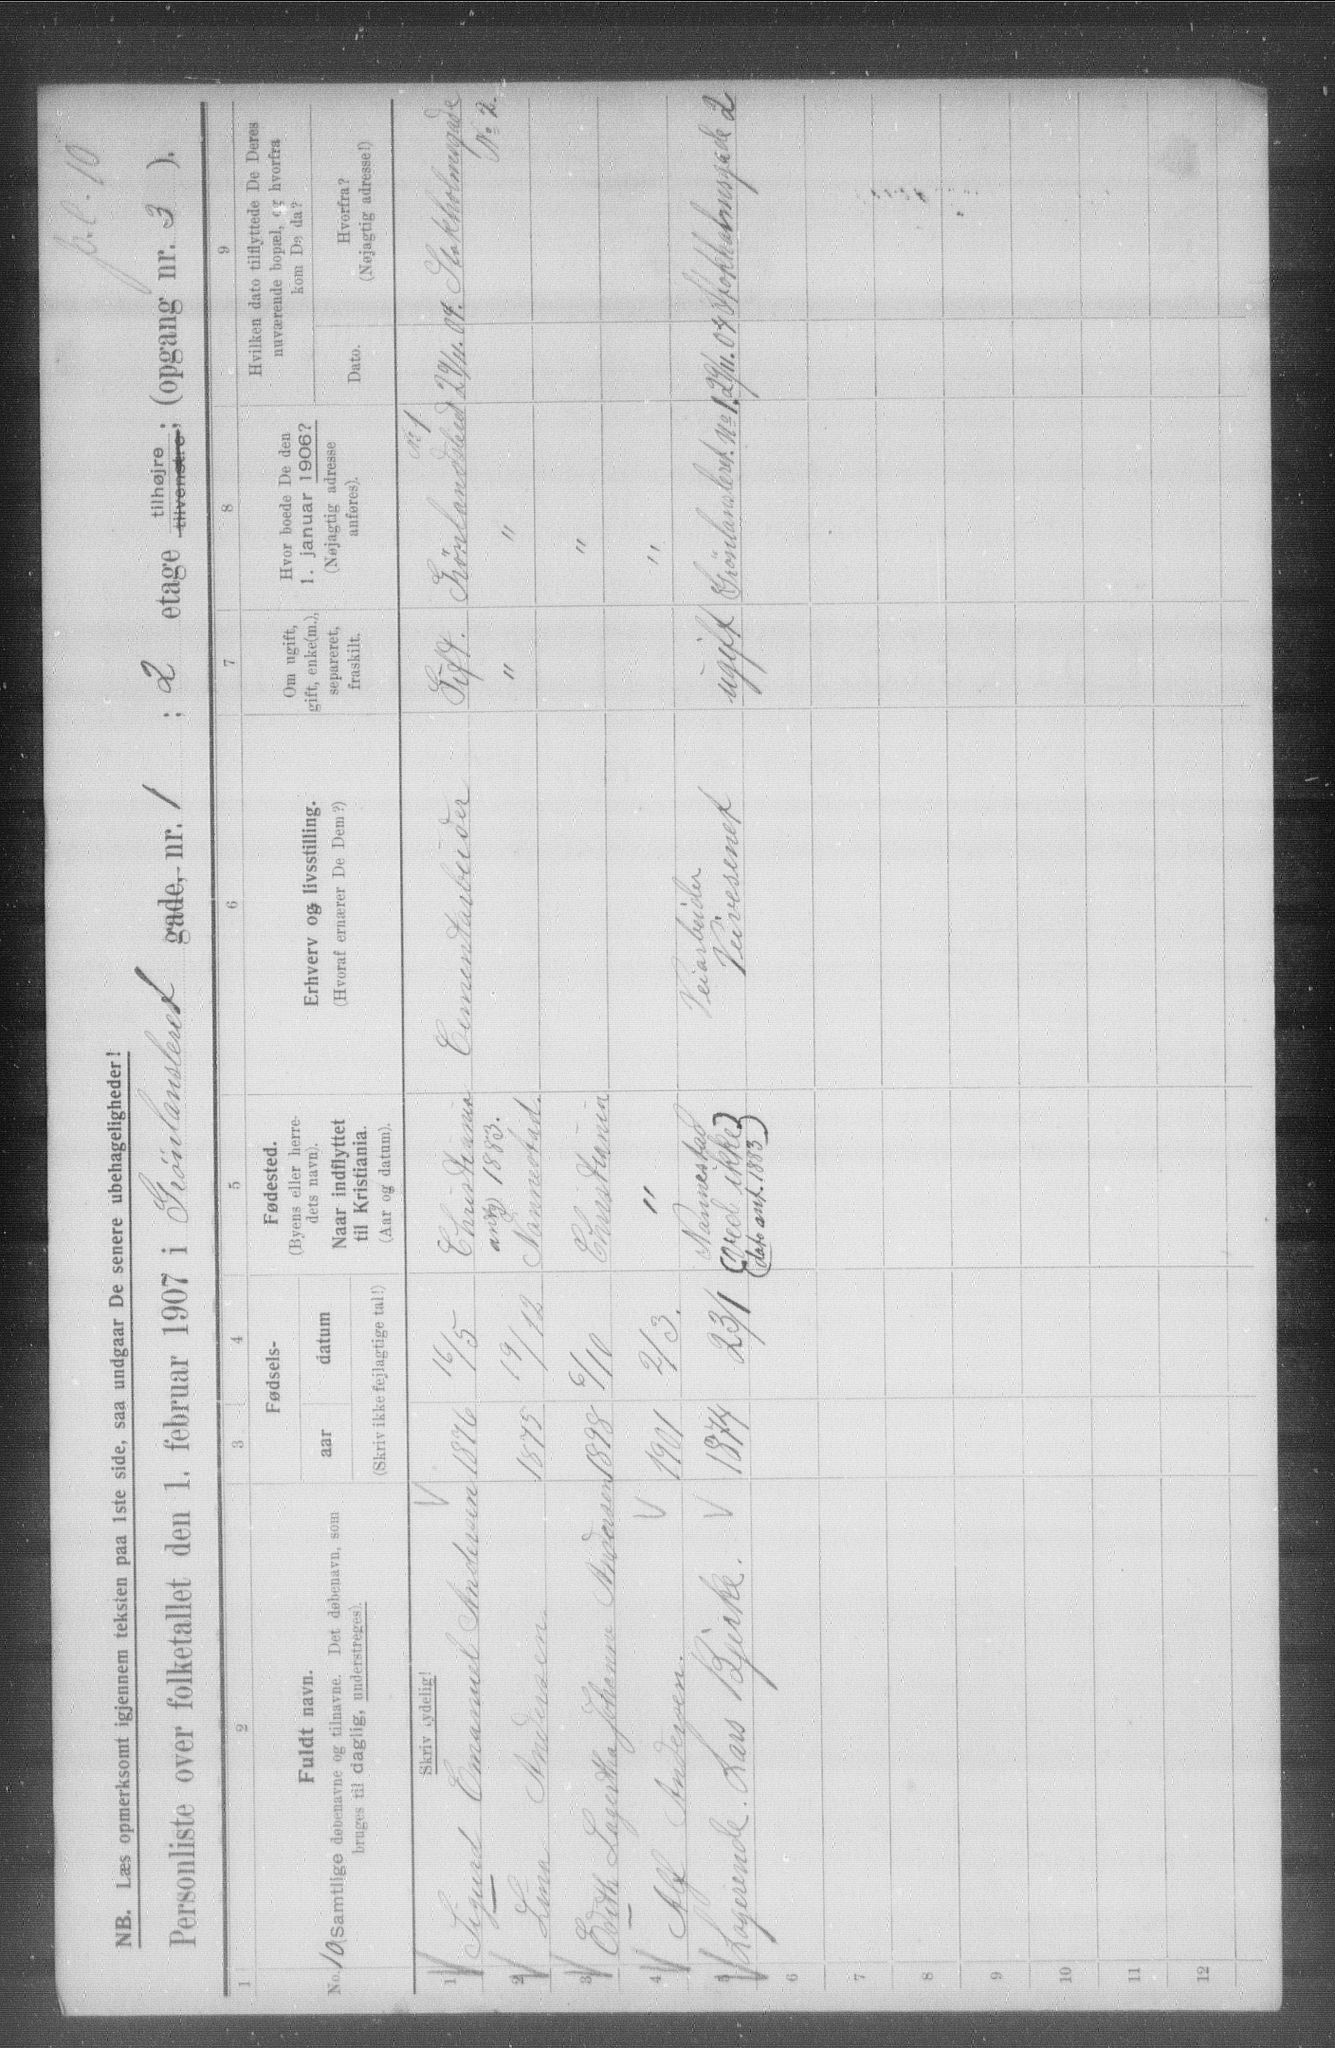 p.l. 10
NB. Læs opmerksomt igjennem teksten paa 1ste side, saa undgaar De senere ubehageligheder!
Personliste over folketallet den 1. februar 1907 i Grönlansleret gade, nr. 1 ; 2 etage tilhøjre tilvenstre; (opgang nr. 3 ).
1 2 3 4 5 6 7 8 9
No. 10
Fuldt navn.
(Samtlige døbenavne og tilnavne. Det døbenavn, som
bruges til daglig, understreges).
Fødsels-
aar datum
(Skriv ikke fejlagtige tal!)
Fødested.
(Byens eller herre-
dets navn).
Naar indflyttet
til Kristiania.
(Aar og datum).
Erhverv og livsstilling.
(Hvoraf ernærer De Dem?)
Om ugift,
gift, enke(m.),
separeret,
fraskilt.
Hvor boede De den
1. januar 1906?
(Nøjagtig adresse
anføres).
Hvilken dato tilflyttede De Deres
nuværende bopæl, og hvorfra
kom De da?
Dato.
Hvorfra?
(Nøjagtig adresse!)
Skriv tydelig!
1 Sigurd Emanuel Andersen 1876 16/5 Christiania Cementarbeider Gift. Grönlandsleret No 1 29/11.04. Stokholmgade No 2.
ank 1883.
2 Lina Andersen 1875 19/12 Nannestad. " "
3 Edith Lagertha Johanne Andersen 1898 6/10 Christiania "
4 Alf Andersen. 1901 2/3. " "
5 Logerende. Lars Bjerke. 1874 23/1 Nannestad Veiarbeider Veivesenet ugift Grönlansleret. No 1. 29/11.04 Stokholmsgade 2
(ved ikke)
(dato ank. 1883)
6
7
8
9
10
11
12